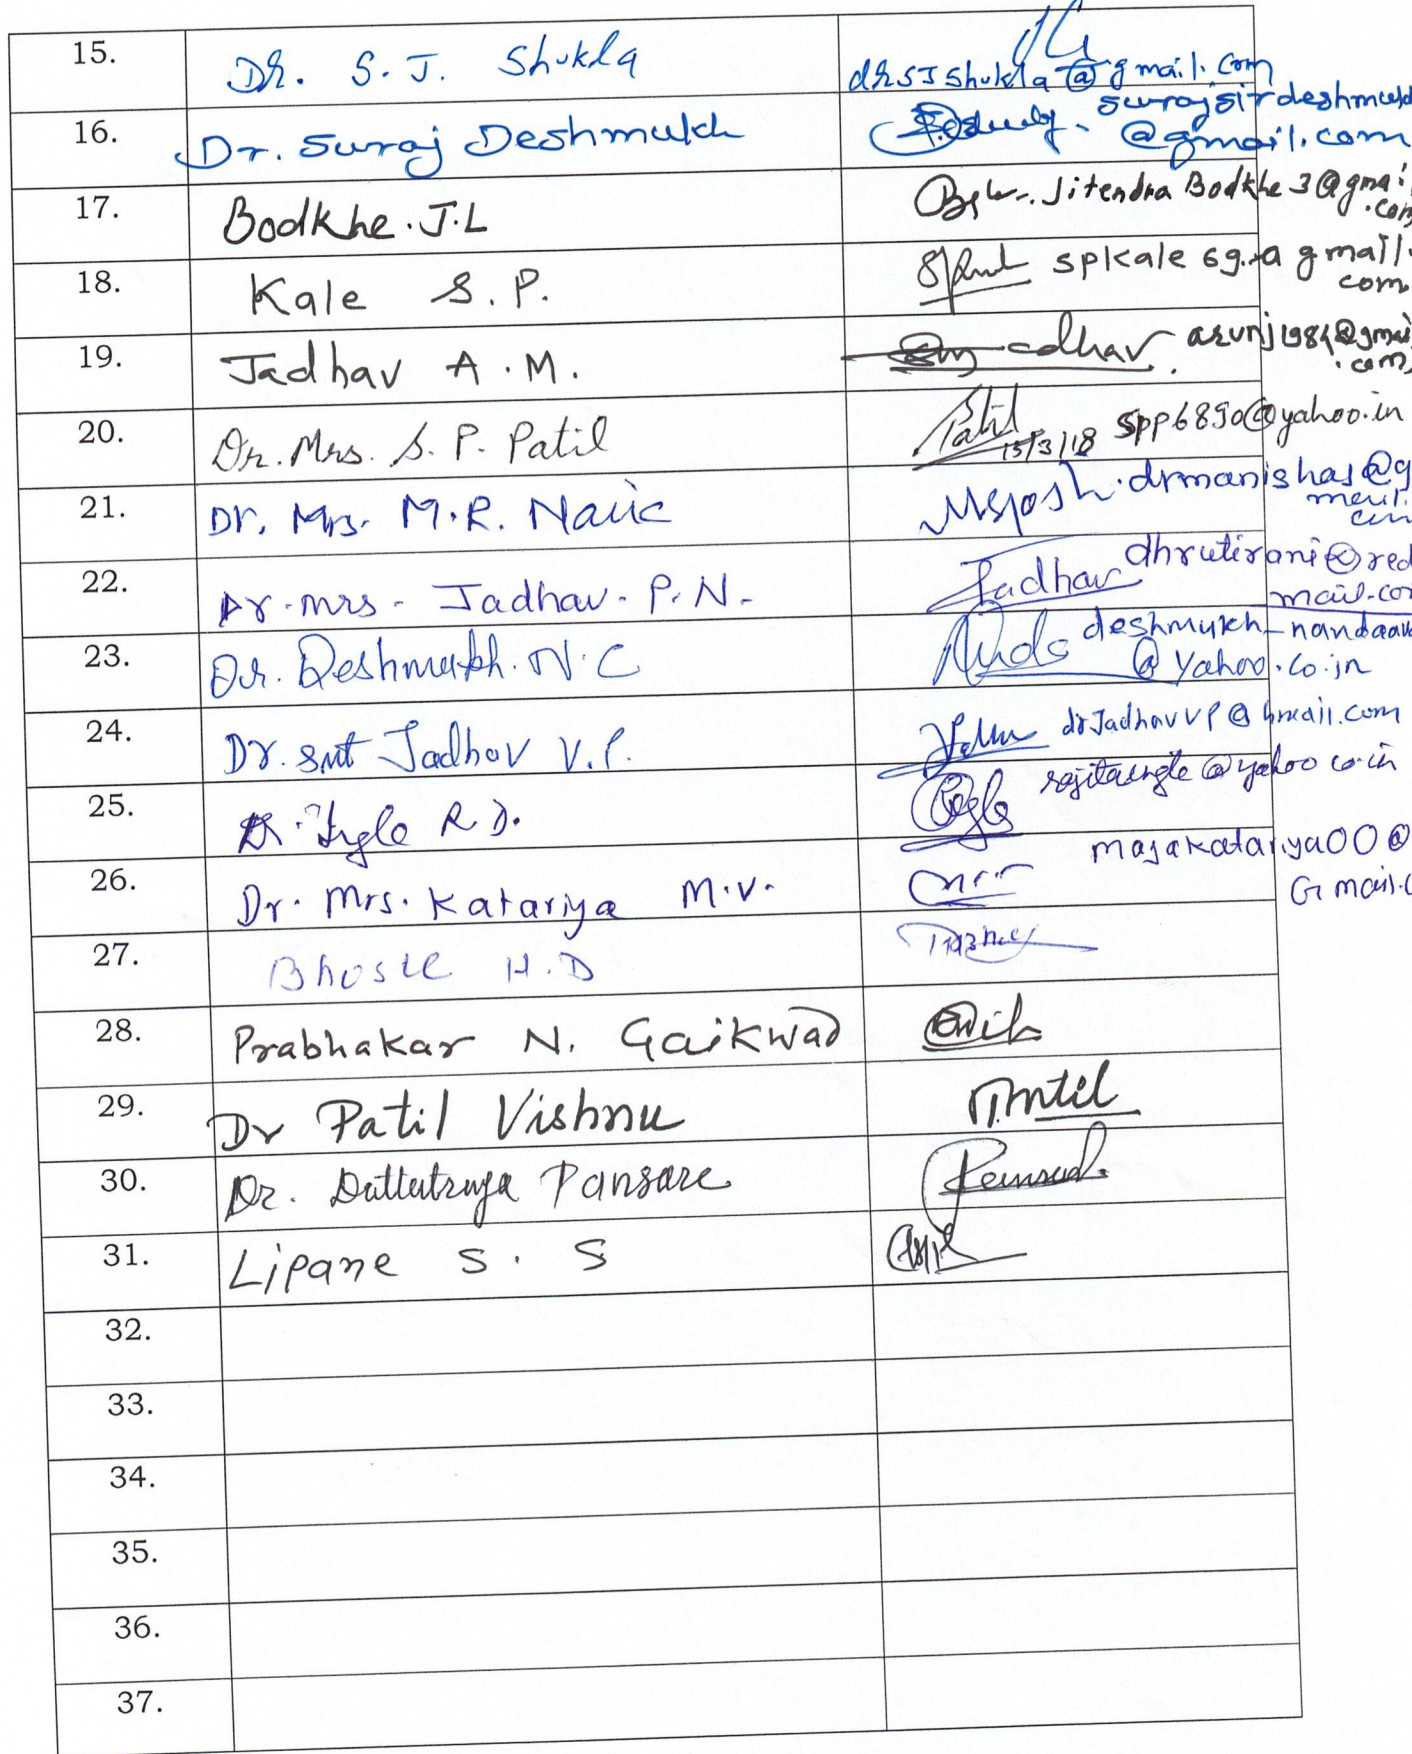 15. Dr. S. J. Shukla drsjshukla@gmail.com
16. Dr. Suraj Deshmukh surajsirdeshmukh
@gmail.com
17. Bodkhe. J.L Jitendra Bodkhe 3@gmai
.com
18. Kale S. P. spkale69.a gmail.
com
19. Jadhav A. M. adhav arunj1981@gmai
.com
20. Dr. Mrs. S. P. Patil Patil spp6890@yahoo.in
15/3/18
21. Dr. Mrs. M. R. Naik drmanishas@g
22. Dr. mrs. Jadhav. P. N. Jadhav dhrutirani@red
mail.co
23. Dr. Deshmukh. N. C deshmukh_nandaa
@yahoo.co.in
24. Dr. smt Jadhav V. P. drJadhavvp@gmail.com
25. Dr. Ingle R. D. rajitaingle@yahoo co.in
26. Dr. Mrs. Katariya M.V. majakatariya00@
Gmail.c
27. Bhosle H.D
28. Prabhakar N. Gaikwad
29. Dr Patil Vishnu
30. Dr. Dattatraya Pansare
31. Lipane S. S
32.
33.
34.
35.
36.
37.